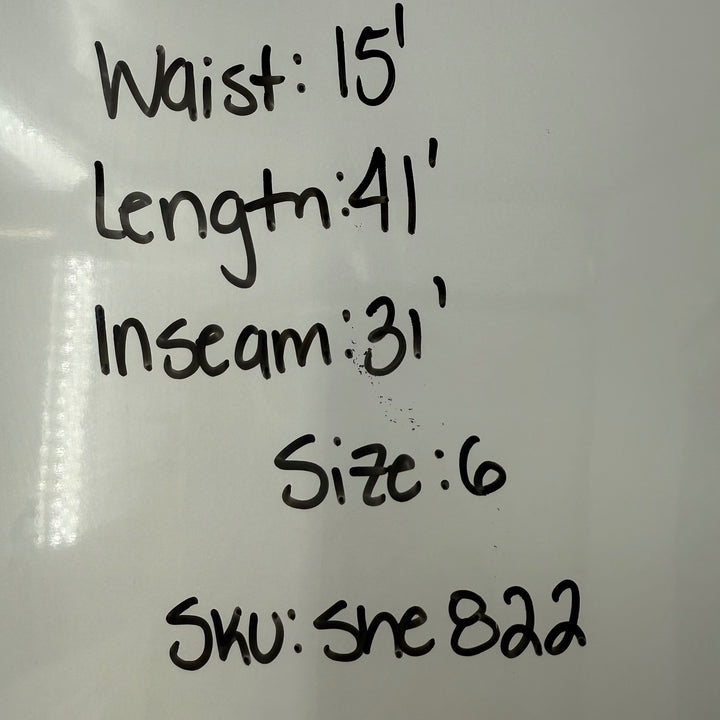 Waist: 15'
Length: 41'
Inseam: 31'
Size: 6
SKU: She 822